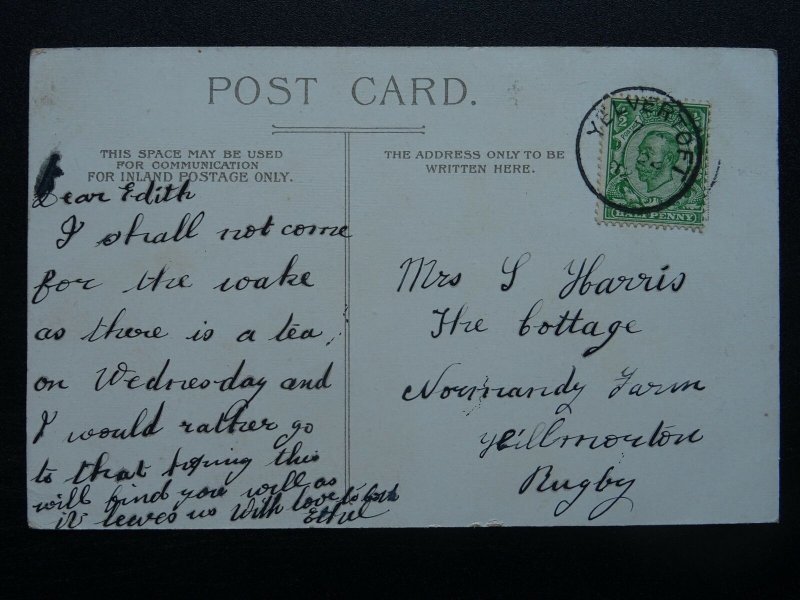 POST CARD.
THIS SPACE MAY BE USED
FOR COMMUNICATION
FOR INLAND POSTAGE ONLY.
THE ADDRESS ONLY TO BE
WRITTEN HERE.
YELVERTOFT
HALFPENNY
Dear Edith
I shall not come
for the wake
as there is a tea
on Wednesday and
I would rather go
to that hoping this
will find you well as
it leaves us With love to
Ethel
Mrs S Harris
The Cottage
Normandy Farm
Hillmorton
Rugby